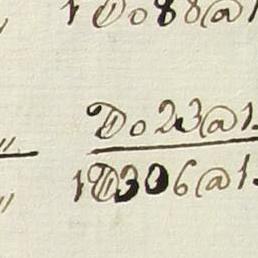 1 Do 88 @ 1
Do 23 @ 1.
1 D 306 @ 1.